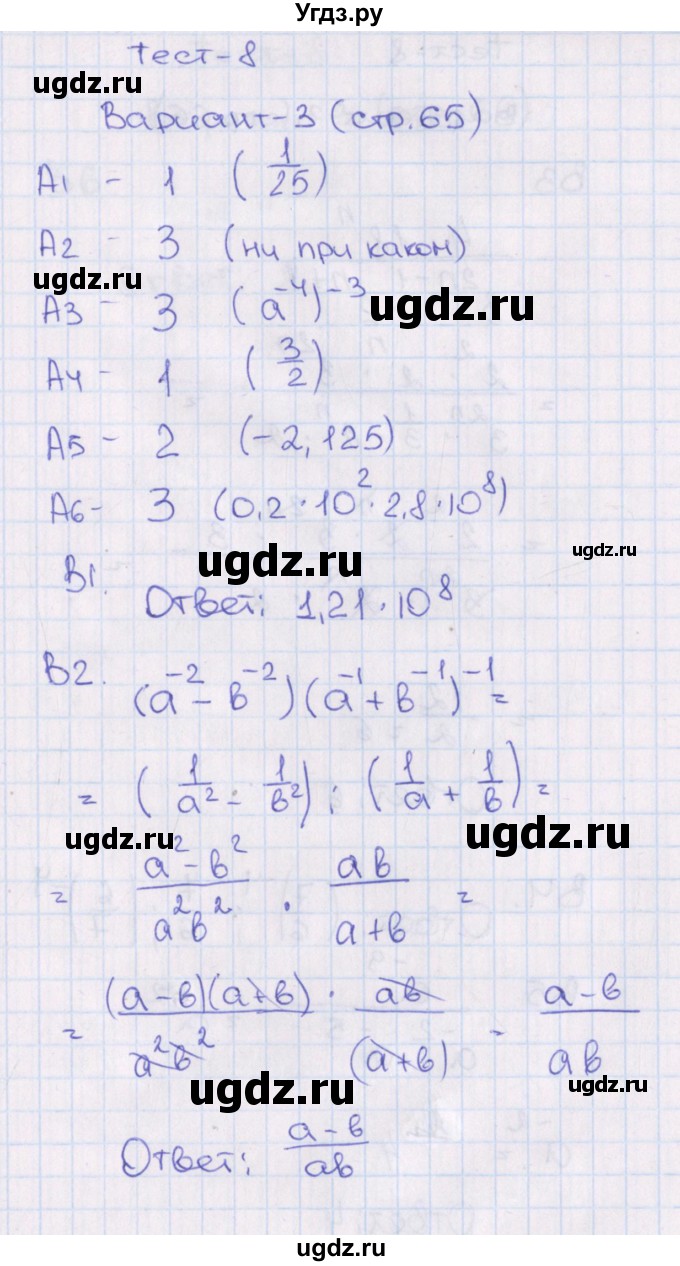 Угдз.ру
Тест-8
ugdz.ru
Вариант-3 (стр.65)
ugdz.ru
А1 - 1 (1/25)
А2 - 3 (ни при каком)
ugdz.ru
А3 - 3 (a⁻⁴)⁻³
ugdz.ru
А4 - 1 (3/2)
А5 - 2 (-2,125)
А6 - 3 (0,2·10²·2,8·10⁸)
ugdz.ru
ugdz.ru
В1.
Ответ: 1,21·10⁸
В2.
(a⁻²-в⁻²)(a⁻¹+в⁻¹)⁻¹=
= (1/a² - 1/в²) : (1/a + 1/в) =
ugdz.ru
ugdz.ru
= (a²-в²)/(a²в²) · (aв)/(a+в) =
= ((a-в)(a+в))/(a²в²) · (aв)/(a+в) = (a-в)/(aв)
ugdz.ru
ugdz.ru
Ответ: (a-в)/(aв)
ugdz.ru
ugdz.ru